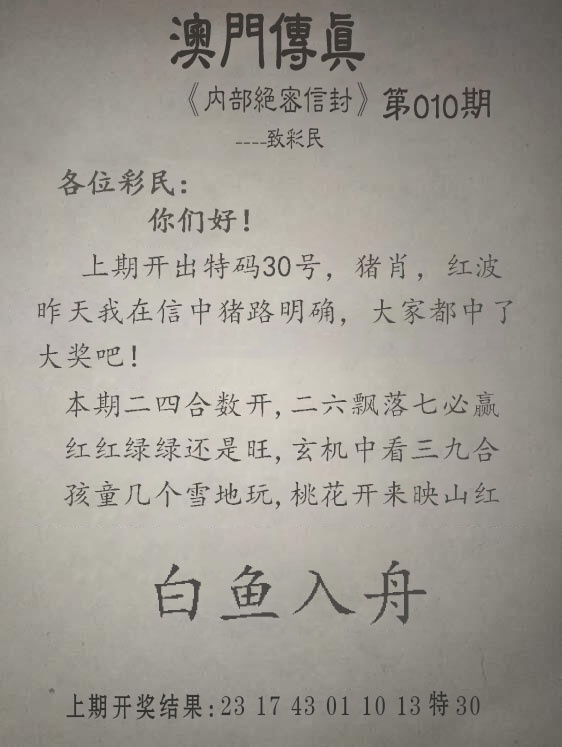 澳門傳眞
《内部絕密信封》第010期
----致彩民
各位彩民:
你们好!
上期开出特码30号, 猪肖, 红波
昨天我在信中猪路明确, 大家都中了
大奖吧!
本期二四合数开,二六飘落七必赢
红红绿绿还是旺,玄机中看三九合
孩童几个雪地玩,桃花开来映山红
白鱼入舟
上期开奖结果:23 17 43 01 10 13 特30